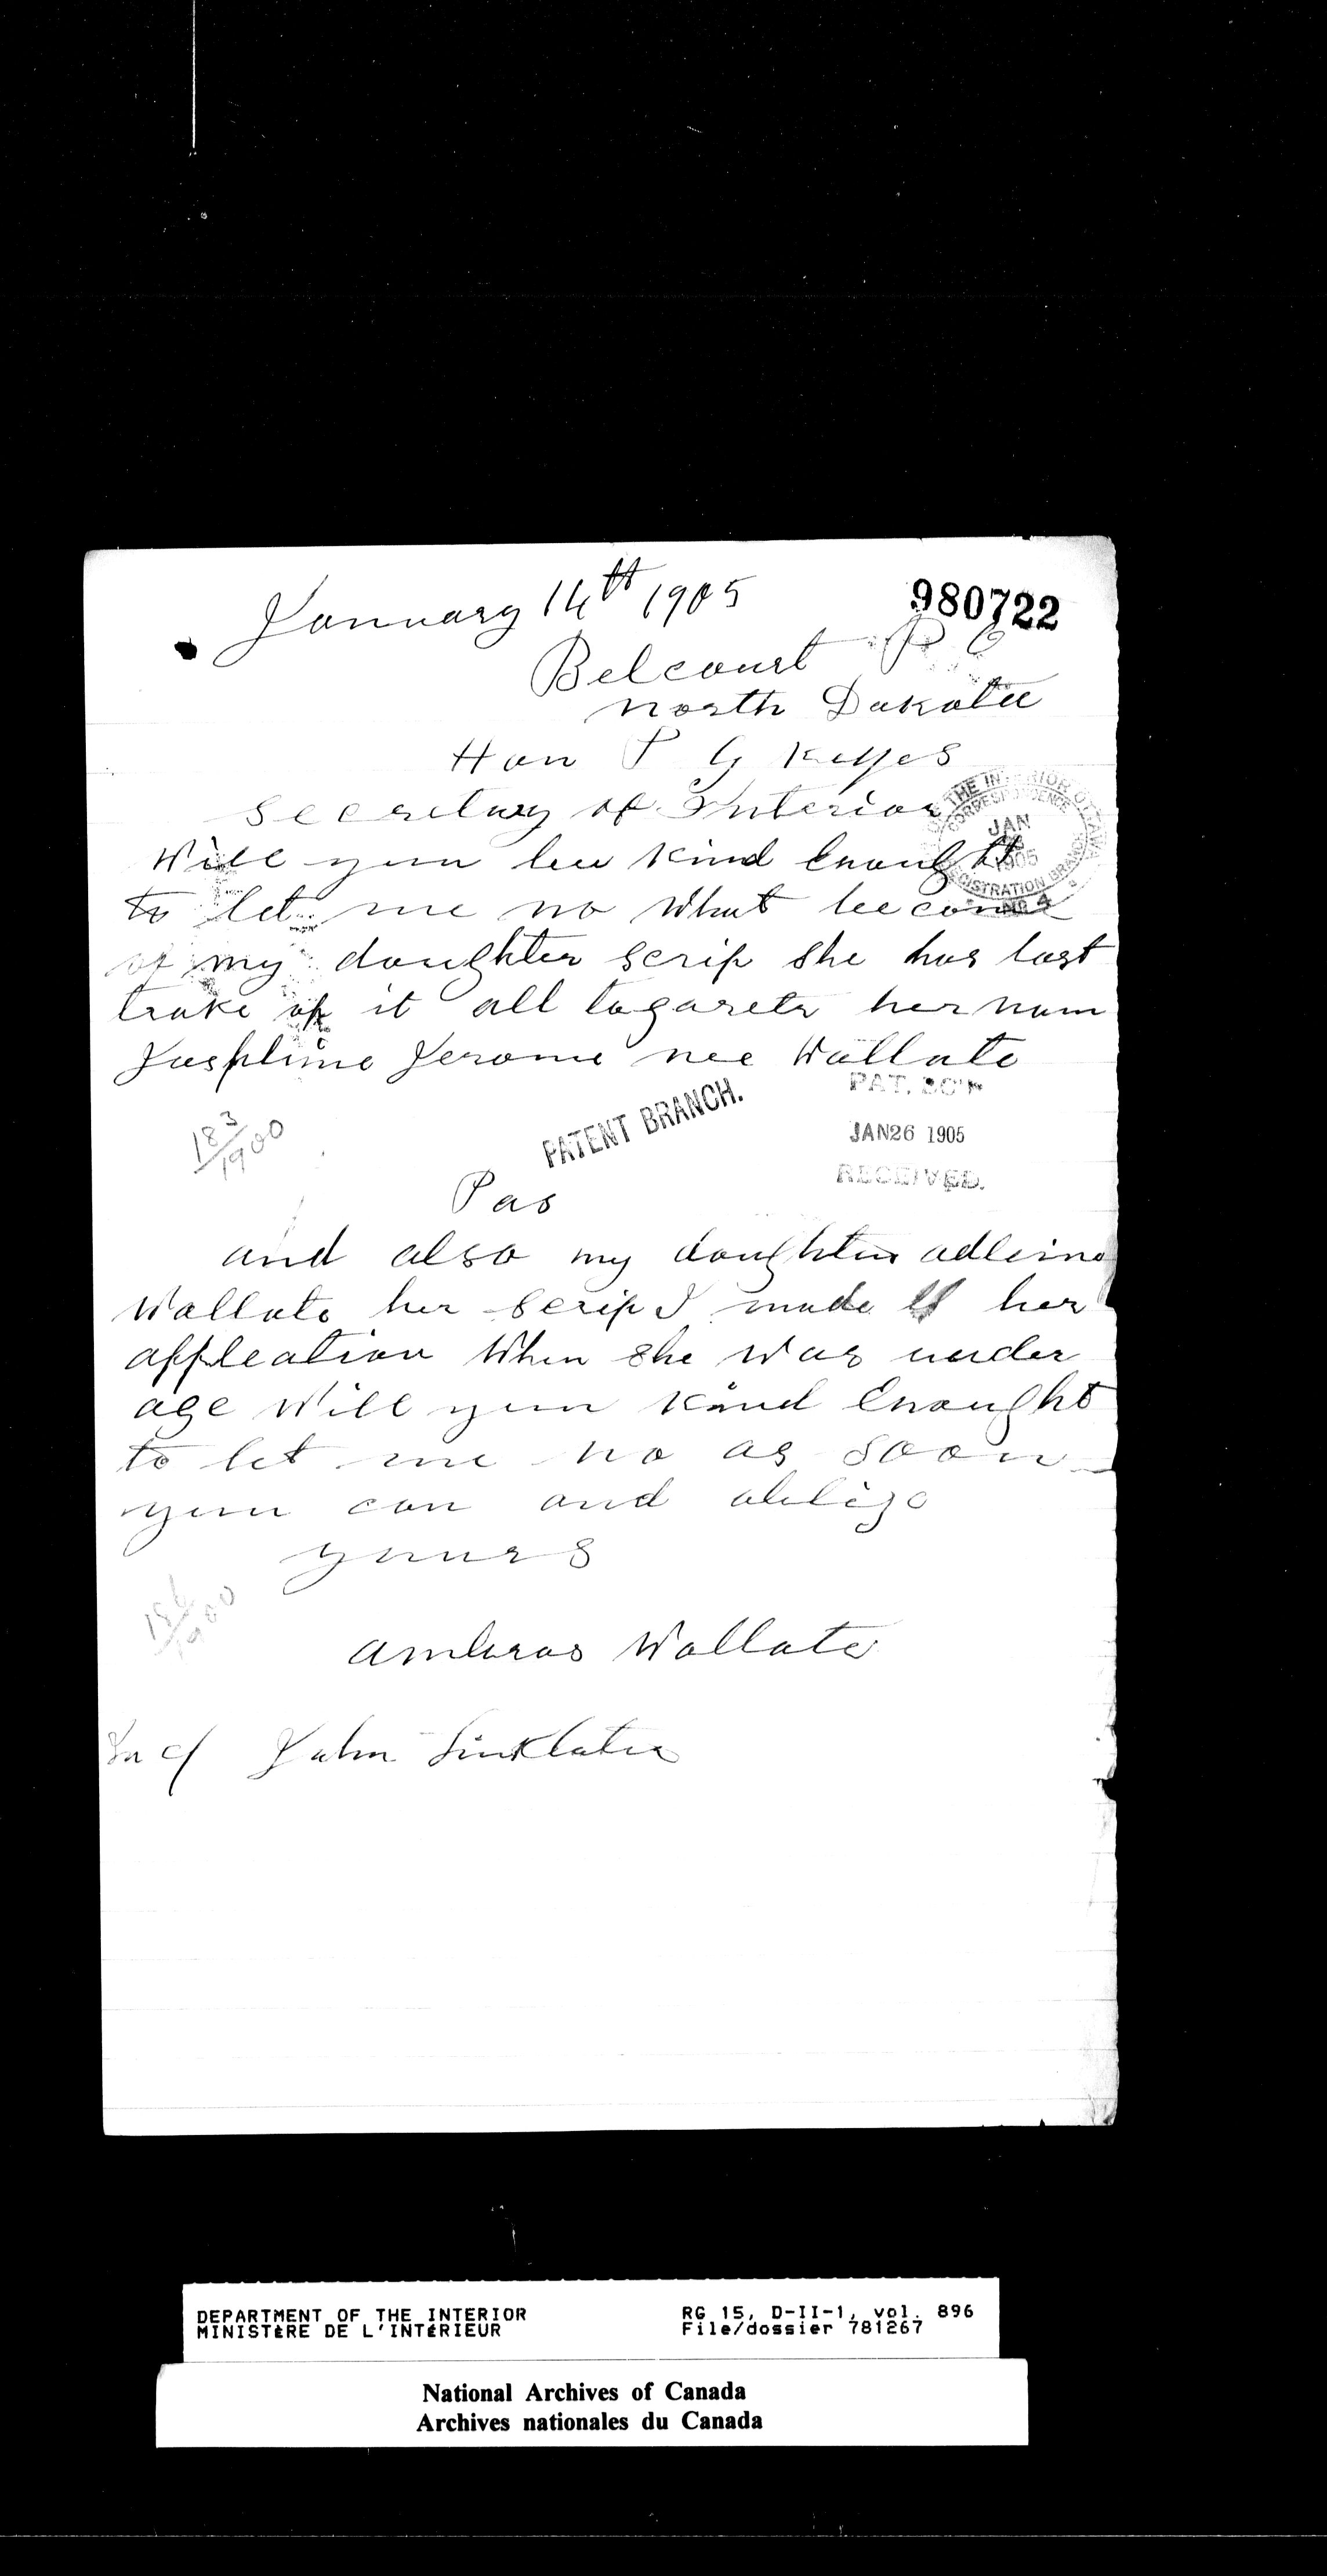 January 14th 1905
980722
Belcourt P O
North Dakota
Hon P G Keyes
Secretary of Interior
THE INTERIOR OTTAWA
CORRESPONDENCE
JAN
1905
REGISTRATION BRANCH
No 4
Will you bee Kind Enought
to let me no What become
of my doughter scrip she has lost
trake of it all togareter her nam
Jusphine Jerome nee Wallate
183/1900
PATENT BRANCH.
JAN26 1905
RECEIVED.
Pas
and also my doughter adleine
Wallate her scrip I made her
appleation When she was under
age Will you Kind Enought
to let me no as soon
you can and oblige
yours
1900
Ambros Wallate
In c/ John Sinklater
DEPARTMENT OF THE INTERIOR
MINISTÈRE DE L'INTÉRIEUR
RG 15, D-II-1, vol. 896
File/dossier 781267
National Archives of Canada
Archives nationales du Canada